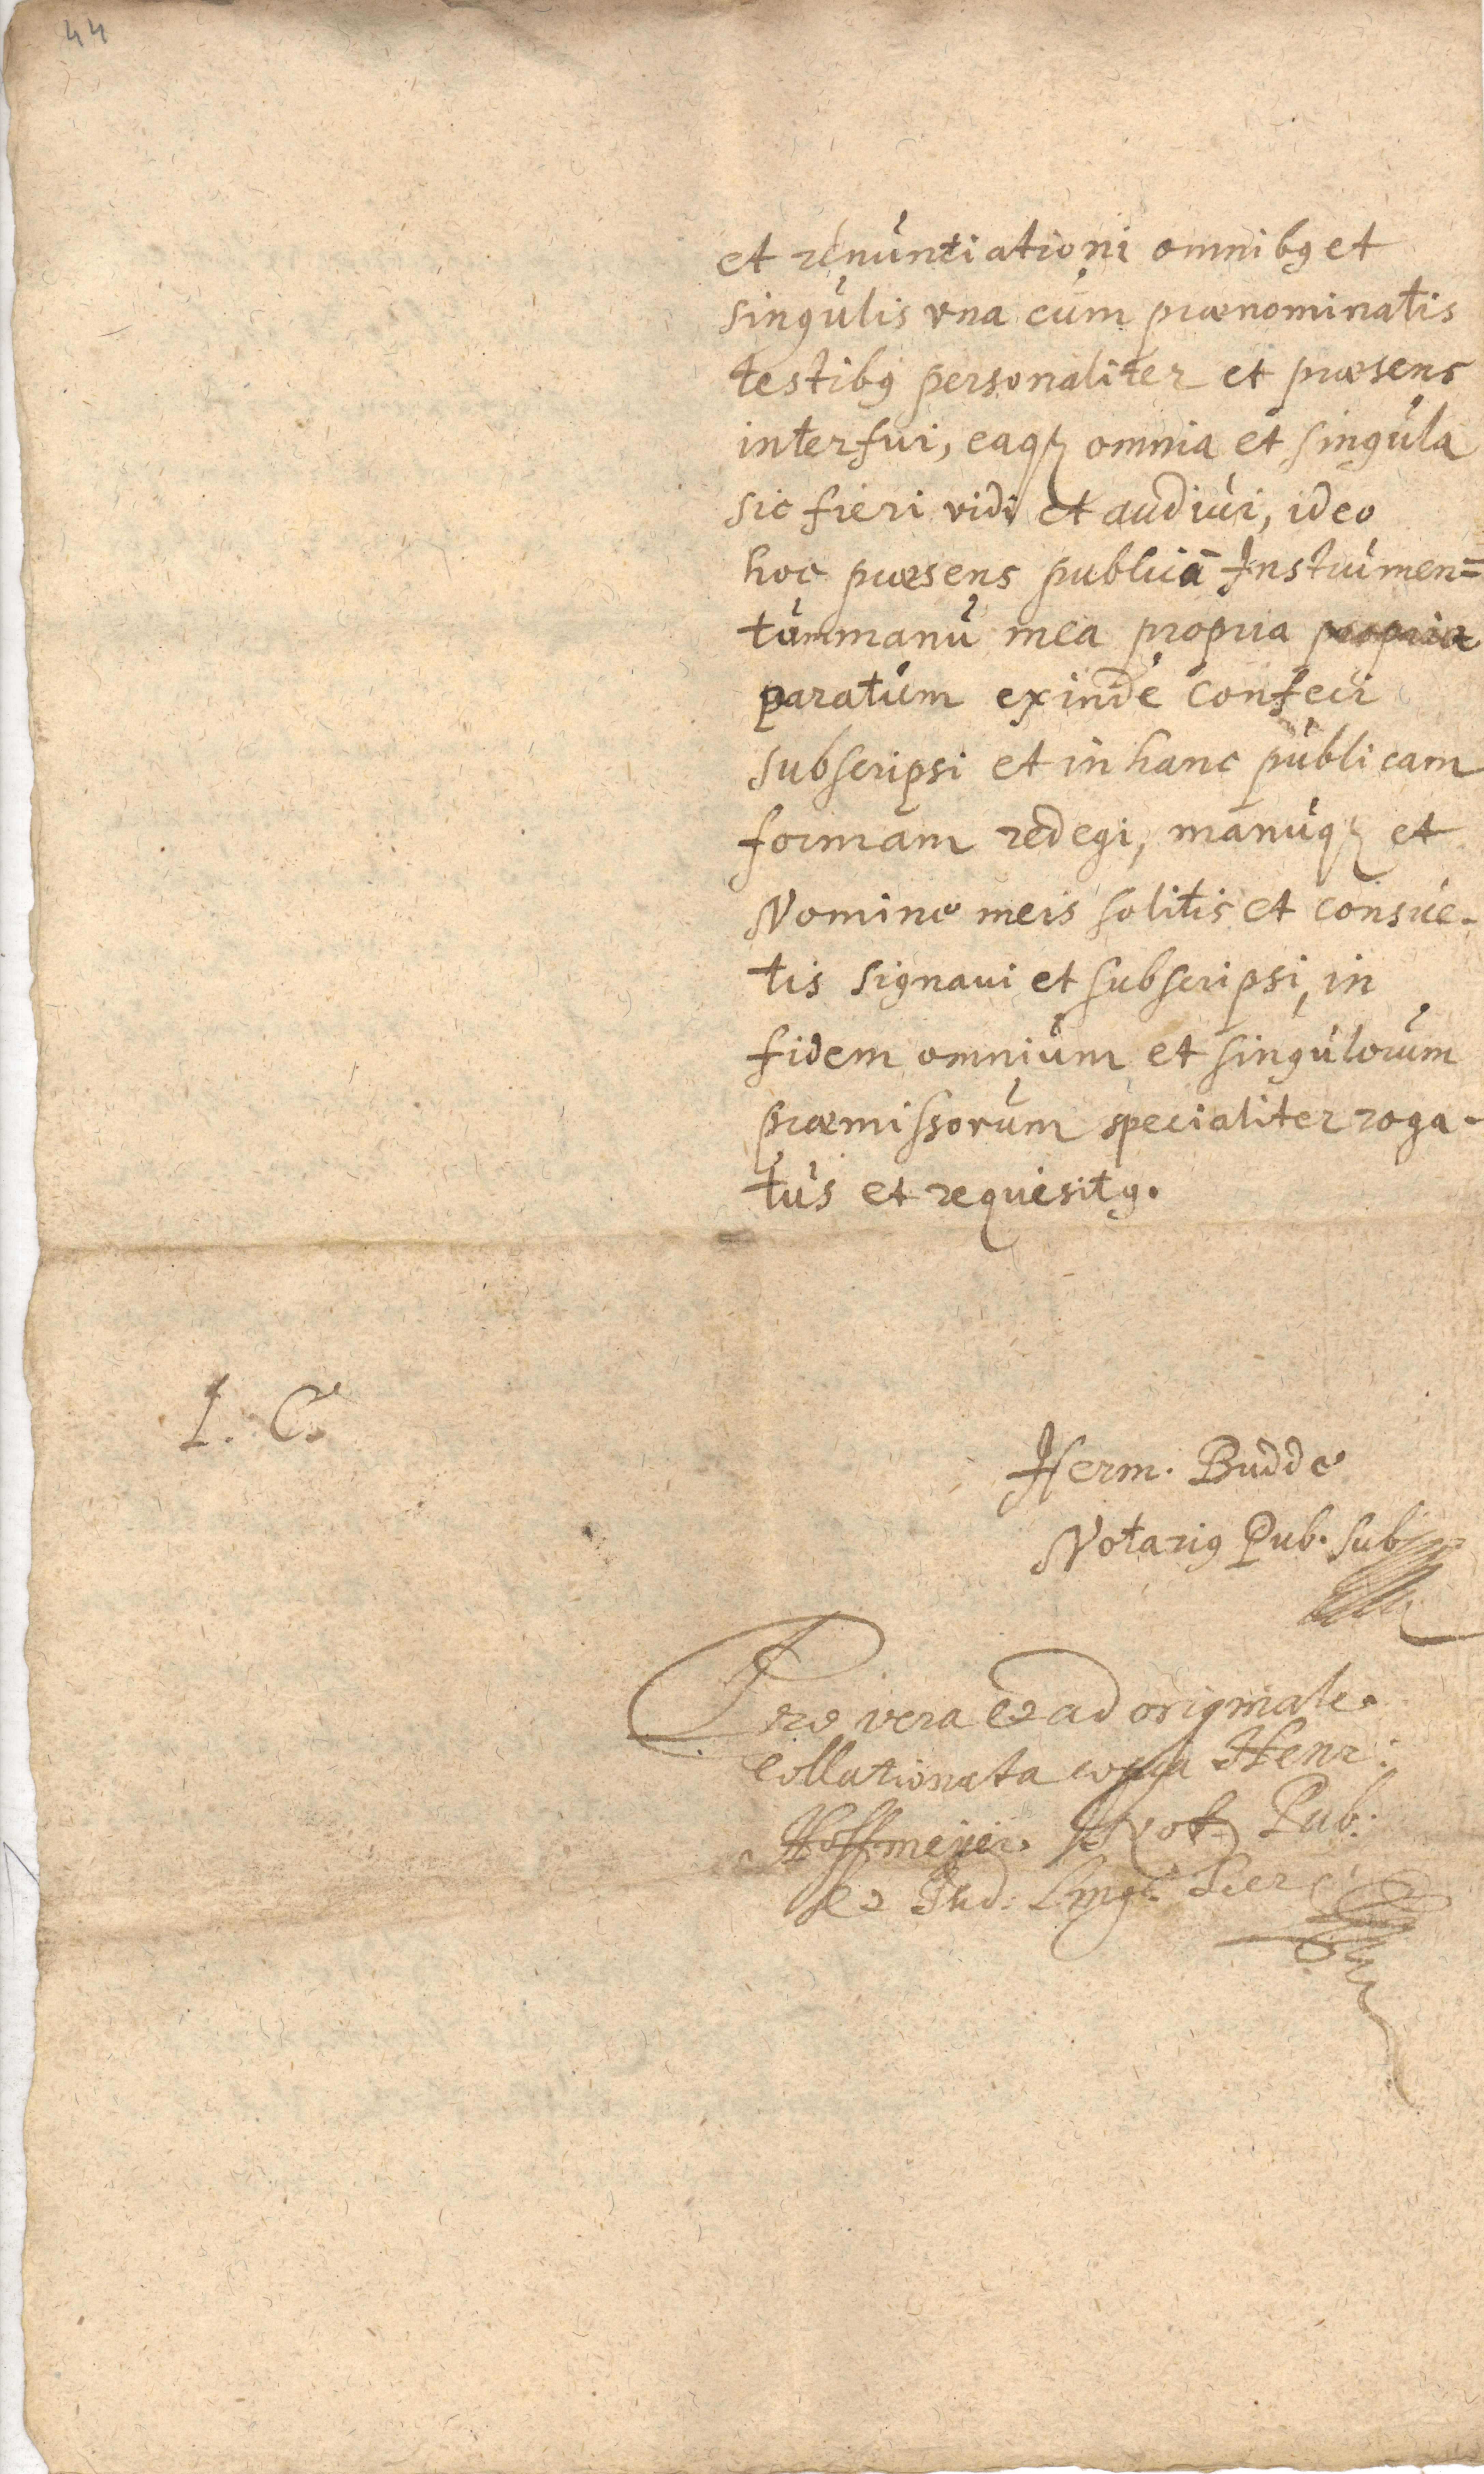 44
et renuntiationi omnibꝫ et
singulis vna cum prænominatis
testibꝫ personaliter et præsens
interfui, eaqꝫ omnia et singula
sic fieri vidi et audiui, ideo
hoc præsens publicū Instrumen=
tum manu mea propria propria
paratum exinde confeci
subscripsi et in hanc publicam
formam redegi, manuqꝫ et
Nomine meis solitis et consue-
tis signaui et subscripsi, in
fidem omnium et singulorum
præmissorum specialiter roga-
tus et requesitꝰ.
L. C.
Herm. Budde
Notariꝰ Pub. sub
Pro vera et ad originale
collationata copia Henr:
Hoffmeyer Not. Pub.
et Jud. Ling.